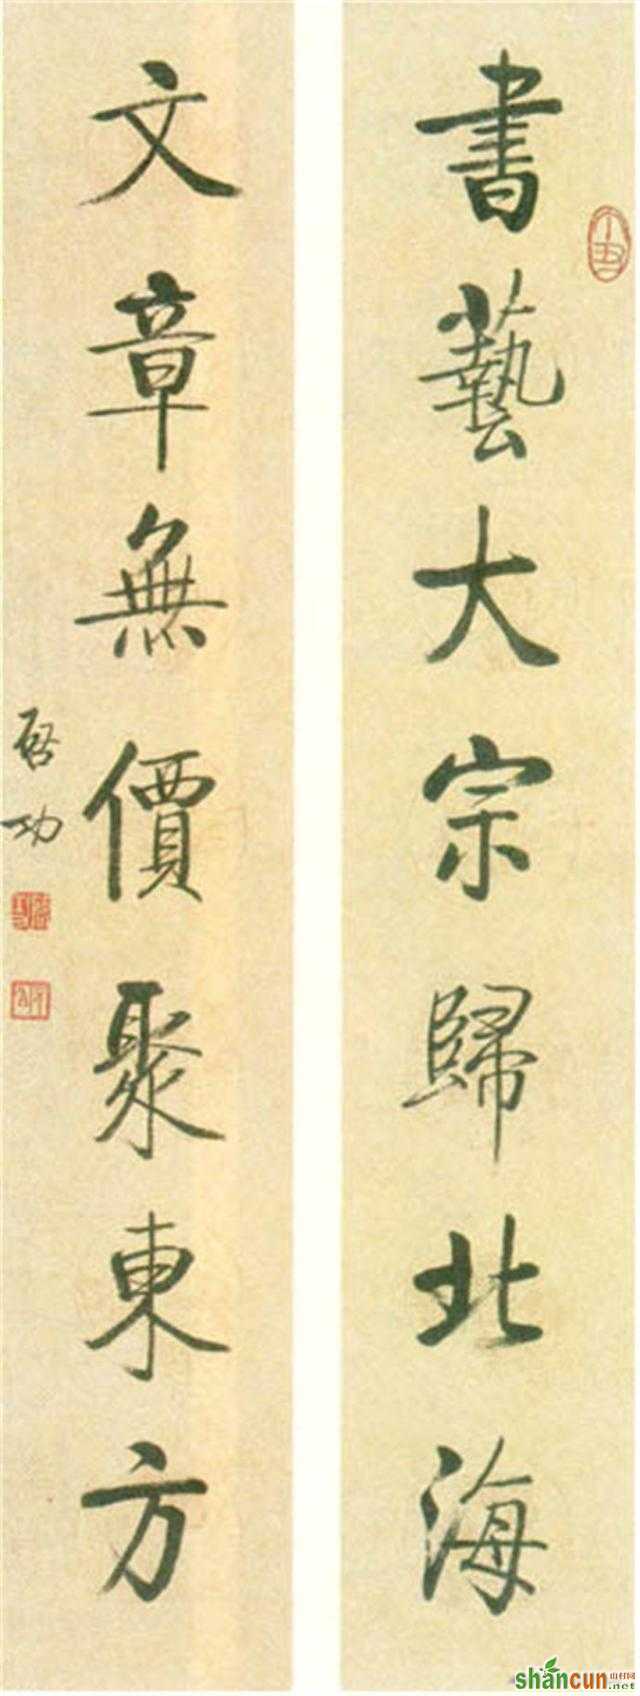 書藝大宗歸北海
文章無價聚東方
啓功
shancun
山村网
.net